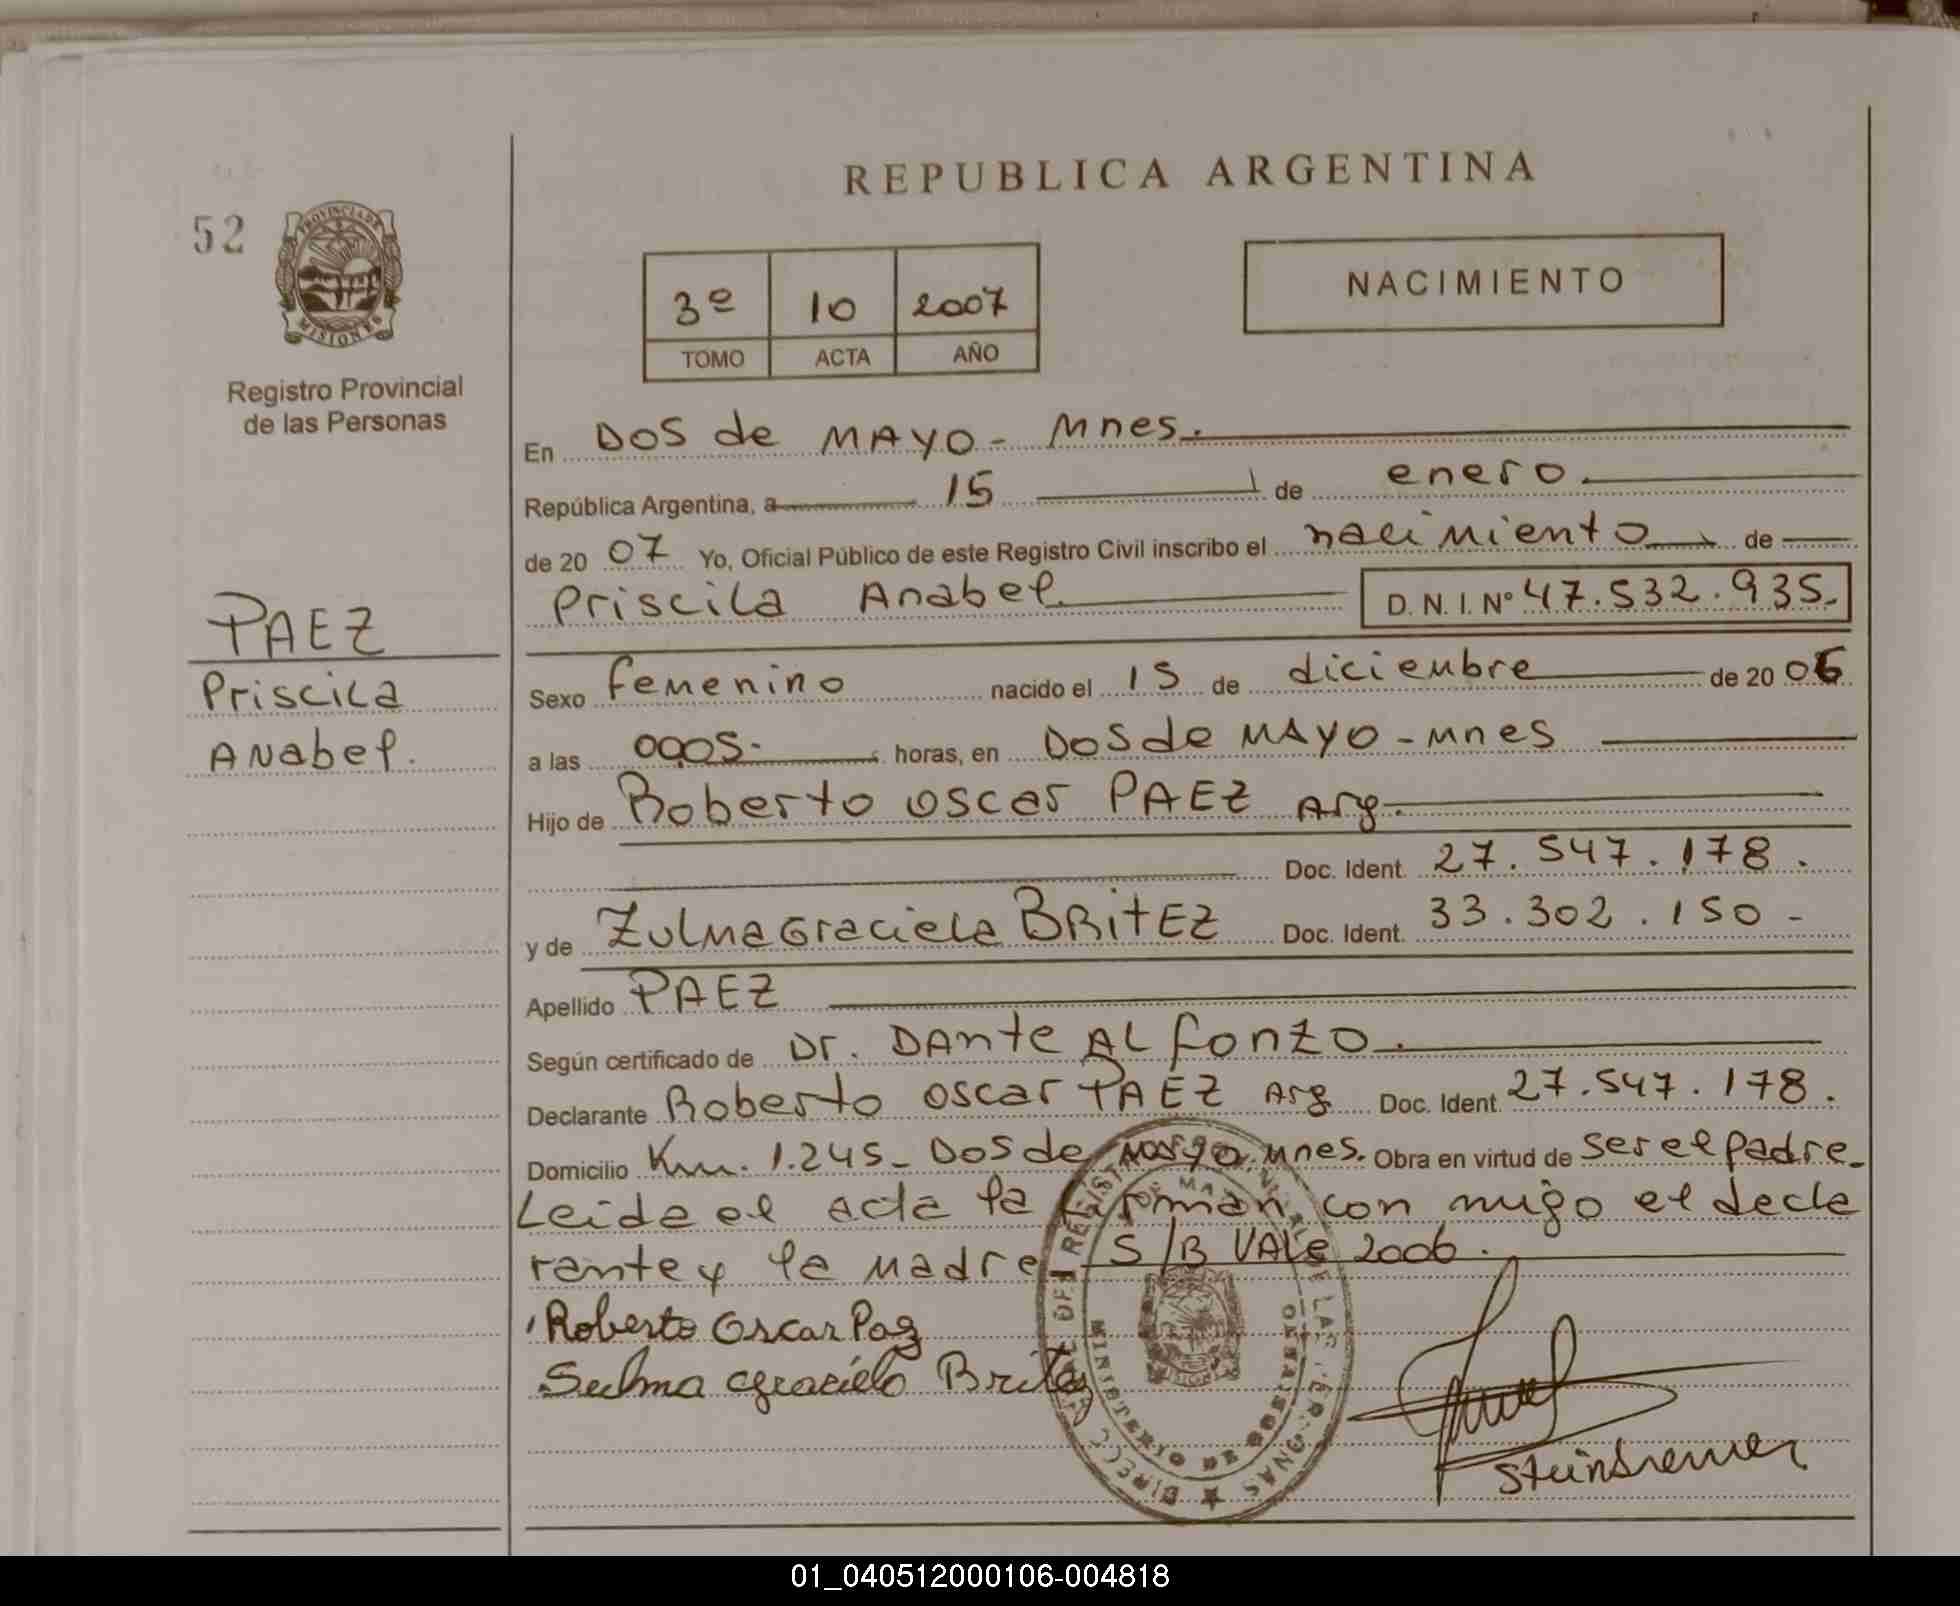 REPUBLICA ARGENTINA
52
PROVINCIA DE
MISIONES
Registro Provincial
de las Personas
3º 10 2007
TOMO ACTA AÑO
NACIMIENTO
En DOS de MAYO - Mnes.
República Argentina, a 15 de enero
de 20 07 Yo, Oficial Público de este Registro Civil inscribo el nacimiento de
Priscila Anabel D. N. I. Nº 47.532.935.
PAEZ
Priscila
Anabel.
Sexo femenino nacido el 15 de diciembre de 20 06
a las 00,05- horas, en Dos de MAYO - Mnes
Hijo de Roberto Oscar PAEZ Arg.
Doc. Ident. 27.547.178.
y de Zulma Graciela BRITEZ Doc. Ident. 33.302.150 -
Apellido PAEZ
Según certificado de Dr. DAnte ALfonzo.
Declarante Roberto Oscar PAEZ Arg Doc. Ident. 27.547.178.
Domicilio Km. 1.245- Dos de Mayo. Mnes. Obra en virtud de Ser el padre.
Leida el acta la firman con migo el decla
rante y la madre S/B VALE 2006.
Roberto Oscar Paez
Sulma Graciela Britez
Steinbrenner
01_040512000106-004818